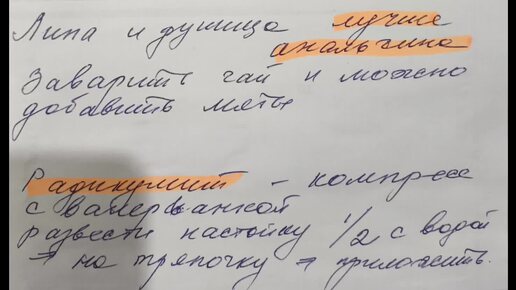 Липа и душица лучше
анальгина
Заварить чай и можно
добавить мяты
Радикулит - компресс
с валерьянкой
развести настойку 1/2 с водой
→ на тряпочку → приложить.